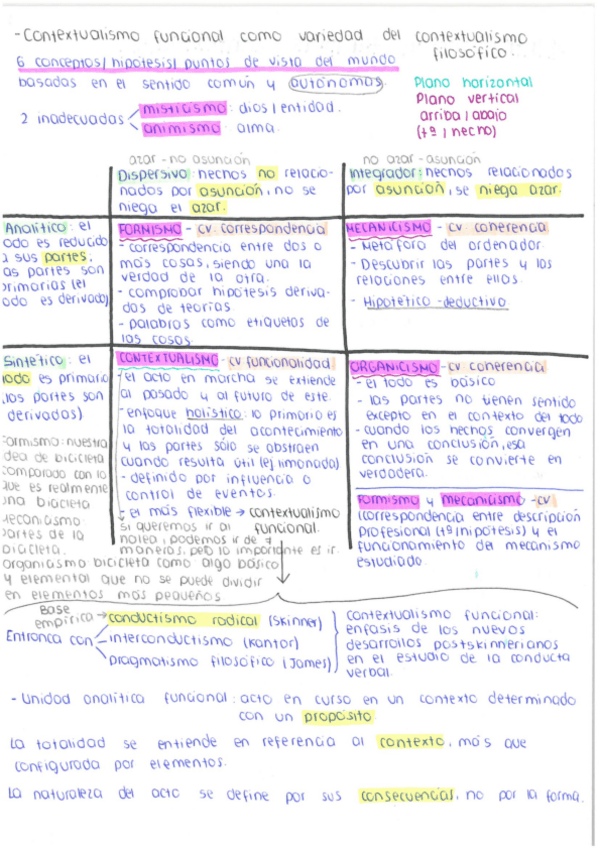 - Contextualismo funcional como variedad del contextualismo
filosófico.
6 conceptos/hipótesis/puntos de vista del mundo
basadas en el sentido común y autónomas
Plano horizontal
Plano vertical
arriba/abajo
(tª/hecho)
2 inadecuadas
misticismo: dios/entidad.
animismo: alma.
azar - no asunción
no azar - asunción
Dispersivo: hechos no relacio-
nados por asunción, no se
niega el azar.
Integrador: hechos relacionados
por asunción, se niega azar.
Analítico: el
odo es reducido
a sus partes,
as partes son
primarias (el
odo es derivado)
FORMISMO - cv. correspondencia
- correspondencia entre dos o
más cosas, siendo una la
verdad de la otra.
- comprobar hipótesis deriva-
das de teorías
- palabras como etiquetas de
las cosas.
MECANICISMO - cv coherencia
- Metáfora del ordenador.
- Descubrir las partes y las
relaciones entre ellos.
- Hipotético-deductivo.
Sintético: el
todo es primario
(las partes son
derivadas)
CONTEXTUALISMO - cv funcionalidad
- el acto en marcha se extiende
al pasado y al futuro de este.
- enfoque holístico: lo primario es
la totalidad del acontecimiento
y las partes sólo se abstraen
cuando resulta útil (ej limonada)
- definido por influencia o
control de eventos.
- el más flexible → contextualismo
funcional.
si queremos ir al
noleo, podemos ir de ≠
maneras, pero lo importante es ir.
ORGANICISMO - cv coherencia
- el todo es básico
- las partes no tienen sentido
excepto en el contexto del todo
- cuando los hechos convergen
en una conclusión, esa
conclusión se convierte en
verdadera.
Formismo y mecanicismo - cv
(correspondencia entre descripción
profesional (tª/hipótesis) y el
funcionamiento del mecanismo
estudiado.
Formismo: nuestra
idea de bicicleta
comparado con lo
que es realmente
una bicicleta
Mecanicismo
partes de la
bicicleta.
organicismo bicicleta como algo básico
y elemental que no se puede dividir
en elementos más pequeños.
Base
empírica
Entronca con
conductismo radical (Skinner)
interconductismo (Kantor)
pragmatismo filosófico (James)
contextualismo funcional:
énfasis de los nuevos
desarrollos postskinnerianos
en el estudio de la conducta
verbal.
- Unidad analítica funcional: acto en curso en un contexto determinado
con un propósito
La totalidad se entiende en referencia al contexto, más que
configurada por elementos.
La naturaleza del acto se define por sus consecuencias, no por la forma.